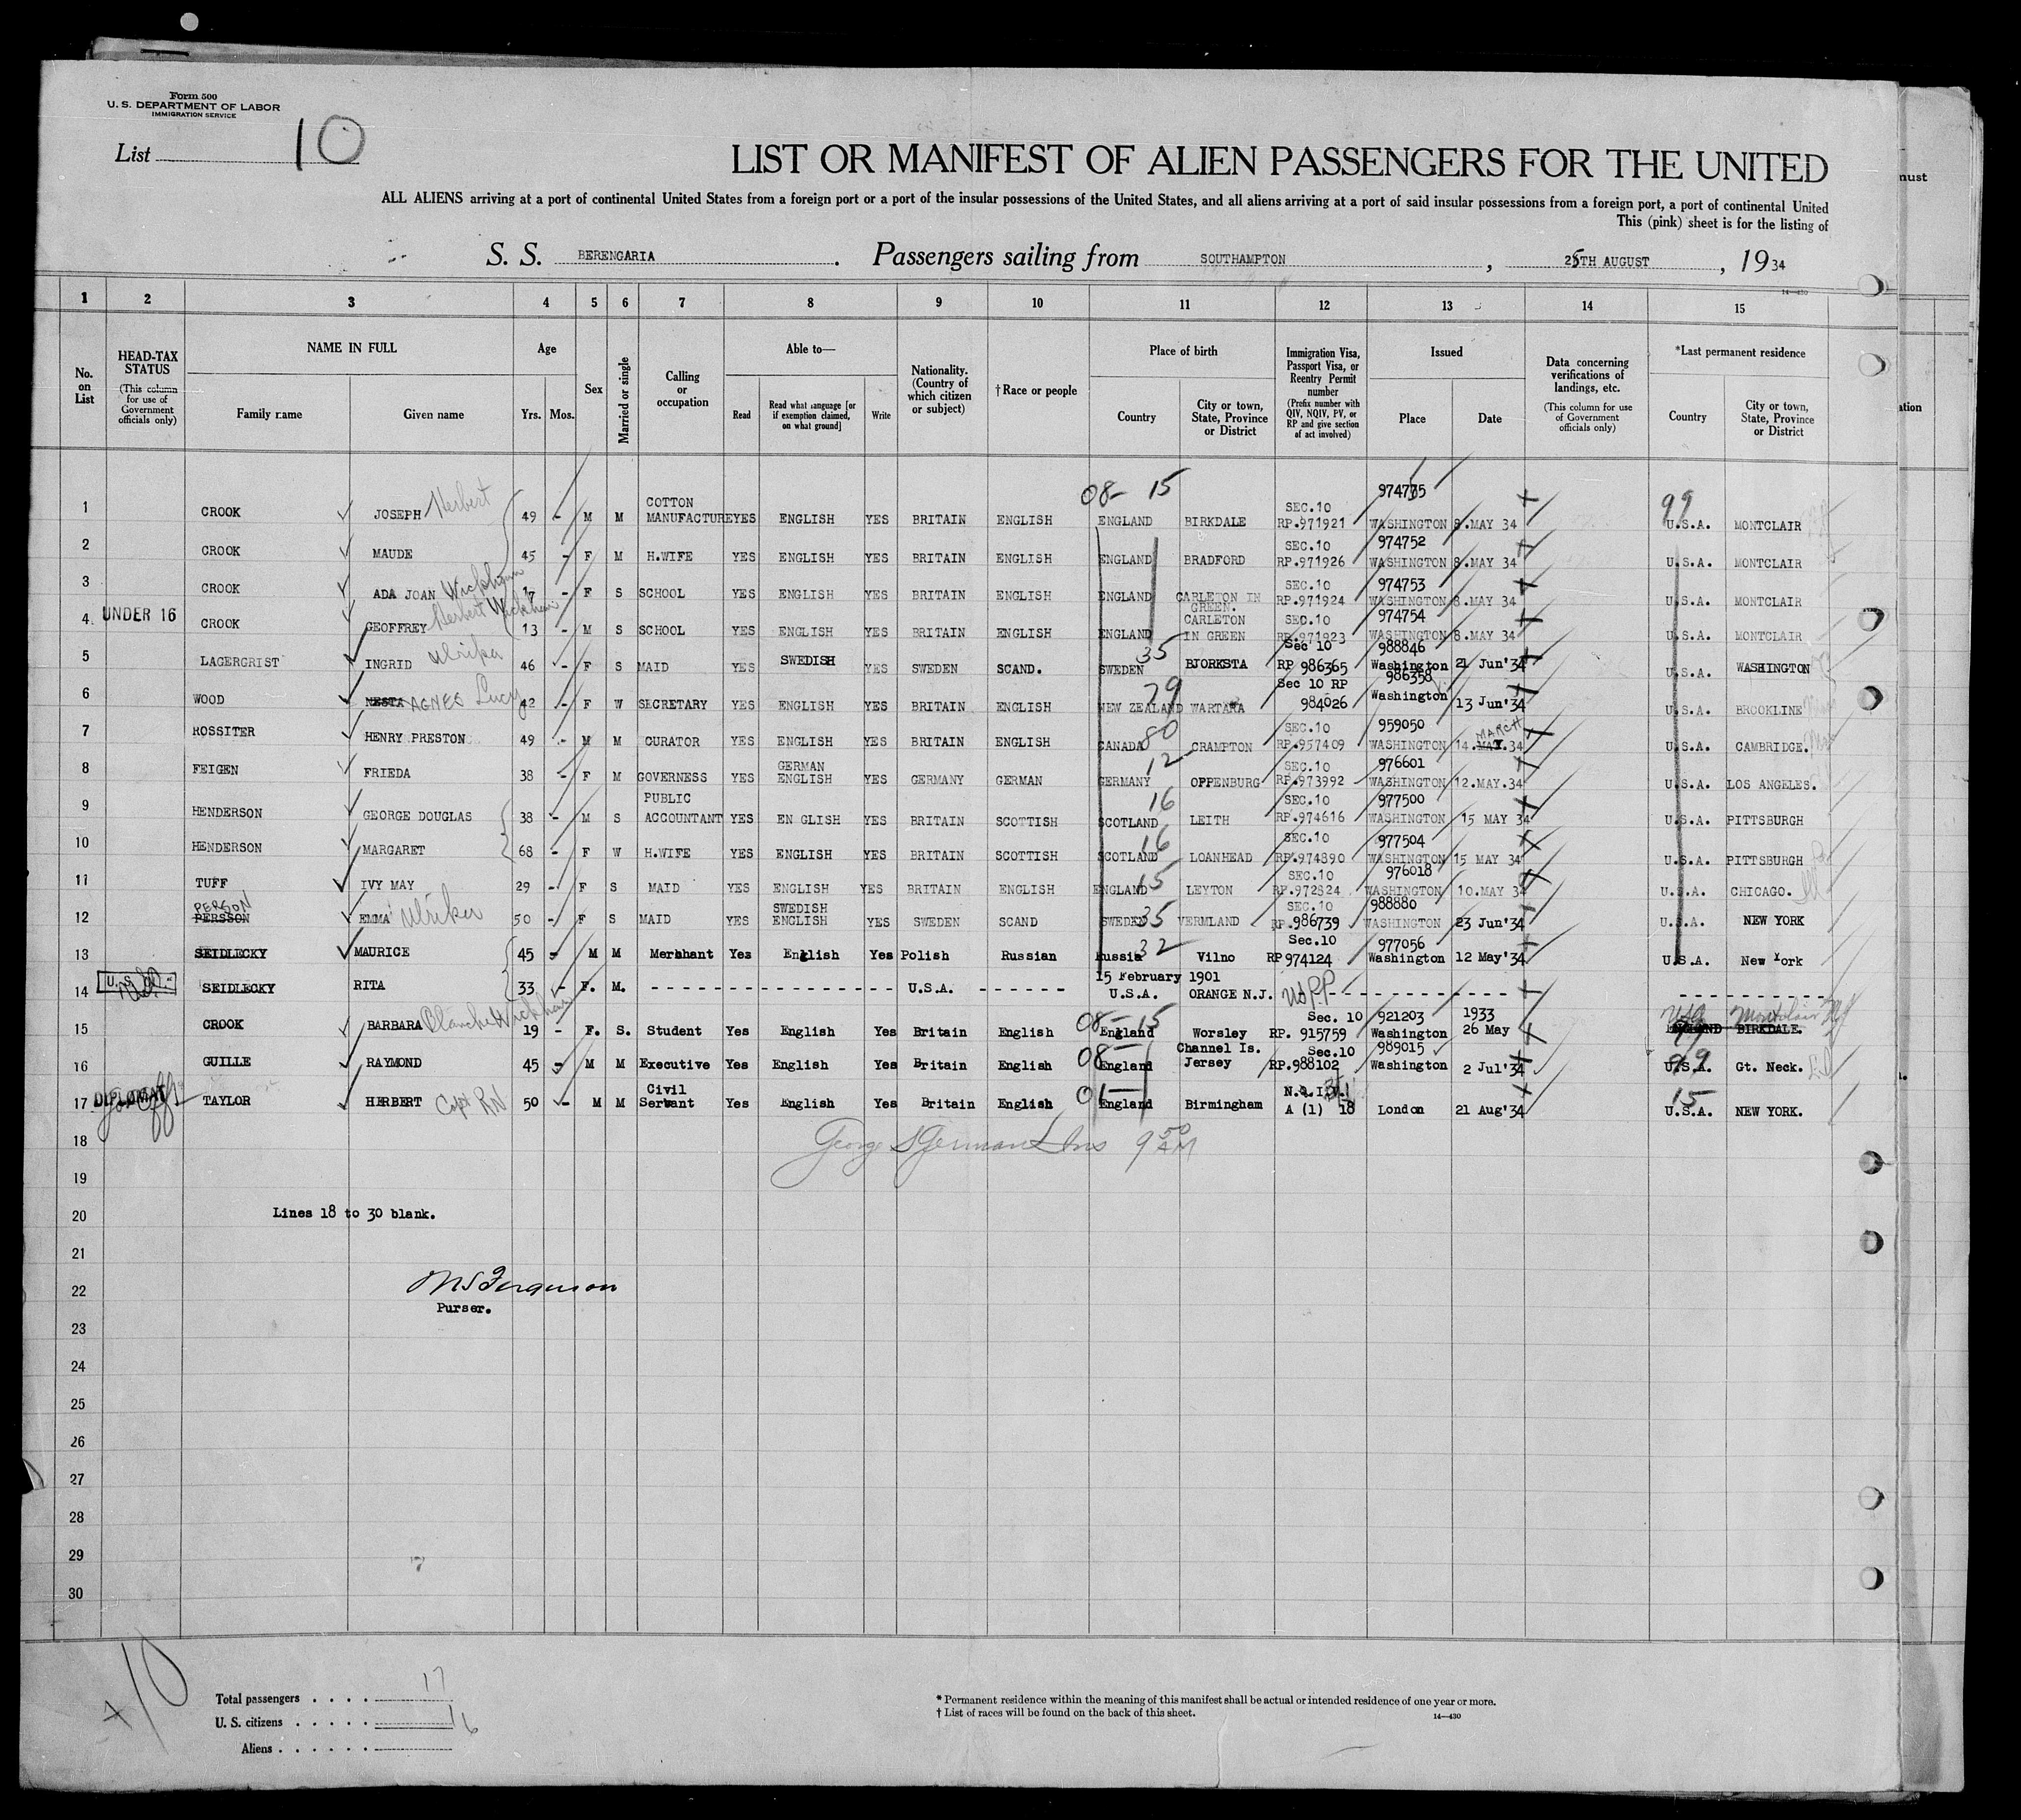 Form 500
U. S. DEPARTMENT OF LABOR
IMMIGRATION SERVICE
List 10
LIST OR MANIFEST OF ALIEN PASSENGERS FOR THE UNITED
ALL ALIENS arriving at a port of continental United States from a foreign port or a port of the insular possessions of the United States, and all aliens arriving at a port of said insular possessions from a foreign port, a port of continental United
This (pink) sheet is for the listing of
S. S. BERENGARIA. Passengers sailing from SOUTHAMPTON, 25TH AUGUST, 1934
14—430
1 2 3 4 5 6 7 8 9 10 11 12 13 14 15
No. on List
HEAD-TAX STATUS (This column for use of Government officials only)
NAME IN FULL
Family name
Given name
Age
Yrs. Mos.
Sex
Married or single
Calling or occupation
Able to—
Read
Read what language [or if exemption claimed, on what ground]
Write
Nationality. (Country of which citizen or subject)
†Race or people
Place of birth
Country
City or town, State, Province or District
Immigration Visa, Passport Visa, or Reentry Permit number (Prefix number with QIV, NQIV, PV, or RP and give section of act involved)
Issued
Place
Date
Data concerning verifications of landings, etc. (This column for use of Government officials only)
*Last permanent residence
Country
City or town, State, Province or District
1 CROOK JOSEPH Herbert 49 - M M COTTON MANUFACTURE YES ENGLISH YES BRITAIN ENGLISH 08- 15 ENGLAND BIRKDALE SEC.10 RP.971921 974775 WASHINGTON 8.MAY 34 99 U.S.A. MONTCLAIR
2 CROOK MAUDE 45 - F M H.WIFE YES ENGLISH YES BRITAIN ENGLISH ENGLAND BRADFORD SEC.10 RP.971926 974752 WASHINGTON 8.MAY 34 U.S.A. MONTCLAIR
3 CROOK ADA JOAN Wickham 17 - F S SCHOOL YES ENGLISH YES BRITAIN ENGLISH ENGLAND CARLETON IN GREEN. SEC.10 RP.971924 974753 WASHINGTON 8.MAY 34 U.S.A. MONTCLAIR
4 UNDER 16 CROOK GEOFFREY Herbert Wickham 13 - M S SCHOOL YES ENGLISH YES BRITAIN ENGLISH ENGLAND CARLETON IN GREEN SEC.10 RP.971923 974754 WASHINGTON 8.MAY 34 U.S.A. MONTCLAIR
5 LAGERGRIST INGRID Ulrika 46 - F S MAID YES SWEDISH YES SWEDEN SCAND. 35 SWEDEN BJORKSTA Sec 10 RP 986365 988846 Washington 21 Jun'34 U.S.A. WASHINGTON
6 WOOD NESTA AGNES Lucy 42 - F W SECRETARY YES ENGLISH YES BRITAIN ENGLISH 79 NEW ZEALAND WARTARA Sec 10 RP 984026 986358 Washington 13 Jun'34 U.S.A. BROOKLINE
7 ROSSITER HENRY PRESTON 49 - M M CURATOR YES ENGLISH YES BRITAIN ENGLISH CANADA 80 CRAMPTON SEC.10 RP.957409 959050 WASHINGTON 14.MAY.34 MARCH U.S.A. CAMBRIDGE.
8 FEIGEN FRIEDA 38 - F M GOVERNESS YES GERMAN ENGLISH YES GERMANY GERMAN 12 GERMANY OPPENBURG SEC.10 RP.973992 976601 WASHINGTON 12.MAY.34 U.S.A. LOS ANGELES.
9 HENDERSON GEORGE DOUGLAS 38 - M S PUBLIC ACCOUNTANT YES EN GLISH YES BRITAIN SCOTTISH 16 SCOTLAND LEITH SEC.10 RP.974616 977500 WASHINGTON 15 MAY 34 U.S.A. PITTSBURGH
10 HENDERSON MARGARET 68 - F W H.WIFE YES ENGLISH YES BRITAIN SCOTTISH 16 SCOTLAND LOANHEAD SEC.10 RP.974890 977504 WASHINGTON 15 MAY 34 U.S.A. PITTSBURGH
11 TUFF IVY MAY 29 - F S MAID YES ENGLISH YES BRITAIN ENGLISH ENGLAND 15 LEYTON SEC.10 RP.972824 976018 WASHINGTON 10.MAY 34 U.S.A. CHICAGO.
12 PERSON PERSSON EMMA Ulrika 50 - F S MAID YES SWEDISH ENGLISH YES SWEDEN SCAND SWEDEN 35 VERMLAND SEC.10 RP.986739 988880 WASHINGTON 23 Jun'34 U.S.A. NEW YORK
13 SEIDLECKY MAURICE 45 - M M Merchant Yes English Yes Polish Russian Russia 32 Vilno Sec.10 RP 974124 977056 Washington 12 May'34 U.S.A. New York
14 U.S. SEIDLECKY RITA 33 - F. M. U.S.A. 15 February 1901 U.S.A. ORANGE N.J. USPP
15 CROOK BARBARA Blanche Wickham 19 - F. S. Student Yes English Yes Britain English 08- 15 England Worsley Sec. 10 RP. 915759 921203 Washington 1933 26 May USA Montclair NJ ENGLAND BIRKDALE.
16 GUILLE RAYMOND 45 - M M Executive Yes English Yes Britain English 08- England Channel Is. Jersey Sec.10 RP.988102 989015 Washington 2 Jul'34 99 U.S.A. Gt. Neck.
17 DIPLOMAT TAYLOR HERBERT Capt RN 50 - M M Civil Servant Yes English Yes Britain English 01- England Birmingham N.Q.I.V. A (1) 18 London 21 Aug'34 15 U.S.A. NEW YORK.
18 9 50 AM
19
20 Lines 18 to 30 blank.
21
22 Ferguson
Purser.
23
24
25
26
27
28
29
30
10
Total passengers . . . . 17
U. S. citizens . . . . . 1
Aliens . . . . . . 16
* Permanent residence within the meaning of this manifest shall be actual or intended residence of one year or more.
† List of races will be found on the back of this sheet.
14—430